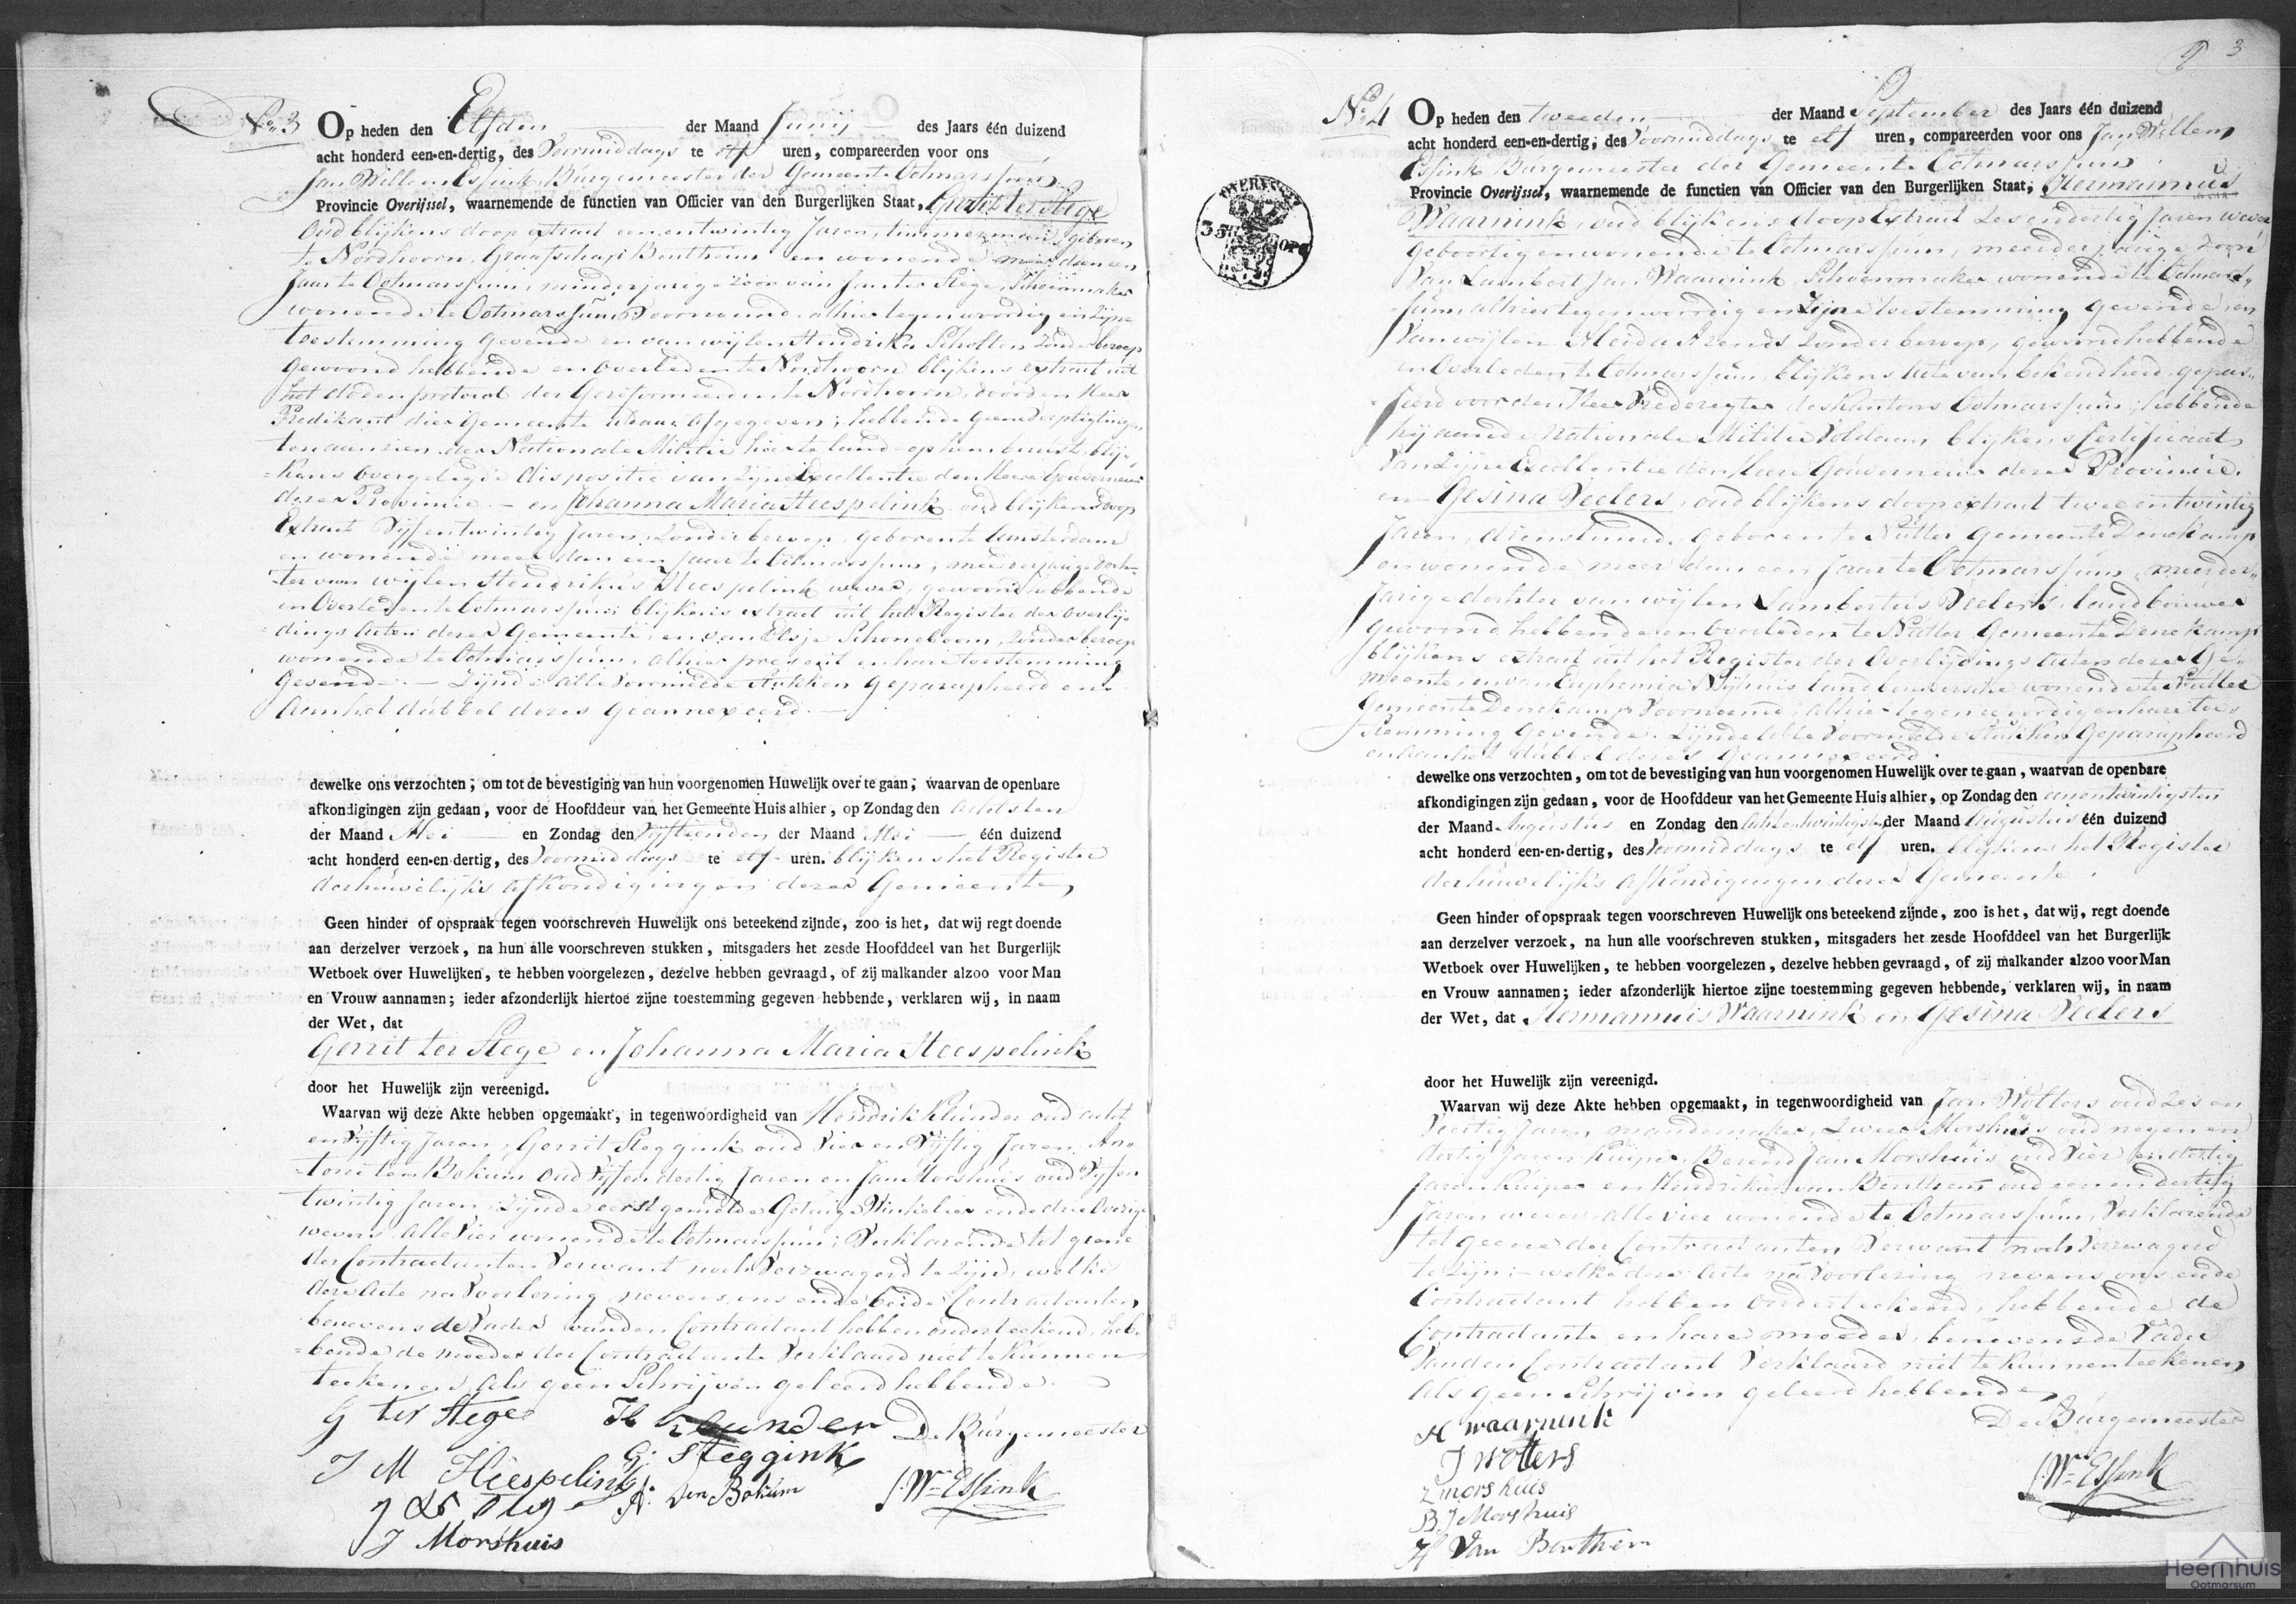 No 3 Op heden den Elfden der Maand Junij des Jaars één duizend
acht honderd een-en-dertig, des Voormiddags te elf uren, compareerden voor ons
Jan Willem Essink Burgemeester der Gemeente Ootmarssum
Provincie Overijssel, waarnemende de functien van Officier van den Burgerlijken Staat, Gerrit ter Stege
Oud blijkens doop extract eenentwintig Jaren, timmerman, geboren
te Nordhoorn, Graafschap Bentheim en wonende meer dan een
Jaar te Ootmarssum, minderjarige zoon van Jan ter Stege, Schoenmaker
wonende te Ootmarssum Voornoemd, alhier tegenwoordig en zijne
toestemming gevende en van wijlen Hendrika Scholten zonder beroep
gewoond hebbende en overleden te Nordhoorn blijkens extract uit
het doden protocol der Gereformeerden te Nordhoorn, door den Heer
Predikant dier Gemeente afgegeven; hebbende geene verpligtingen
ten aanzien der Nationale Militie hier te lande op hem berust, blij-
kens overgelegde dispositie van zijne Excellentie den Heere Gouverneur
dezer Provincie. — en Johanna Maria Heespelink oud blijkens doop
Extract Vijfentwintig Jaren, zonder beroep, geboren te Amsterdam
en wonende meer dan een Jaar te Ootmarssum, meerderjarige doch-
ter van wijlen Hendrikus Heespelink wever, gewoond hebbende
en Overleden te Ootmarssum blijkens extract uit het Register der overlij-
dings Acten dezer Gemeente, en van Elsje Schoneboom, zonder beroep
wonende te Ootmarssum, alhier present en hare toestemming
Gevende. — Zijnde alle voormelde stukken geparapheerd en
aan het dubbel dezes geannexeerd. —
dewelke ons verzochten; om tot de bevestiging van hun voorgenomen Huwelijk over te gaan; waarvan de openbare
afkondigingen zijn gedaan, voor de Hoofddeur van het Gemeente Huis alhier, op Zondag den achtsten
der Maand Mei en Zondag den Vijftienden der Maand Mei één duizend
acht honderd een-en-dertig, des Voormiddags te elf uren. blijkens het Register
der huwelijks afkondigingen dezer Gemeente
Geen hinder of opspraak tegen voorschreven Huwelijk ons beteekend zijnde, zoo is het, dat wij regt doende
aan derzelver verzoek, na hun alle voorschreven stukken, mitsgaders het zesde Hoofddeel van het Burgerlijk
Wetboek over Huwelijken, te hebben voorgelezen, dezelve hebben gevraagd, of zij malkander alzoo voor Man
en Vrouw aannamen; ieder afzonderlijk hiertoe zijne toestemming gegeven hebbende, verklaren wij, in naam
der Wet, dat
Gerrit ter Stege en Johanna Maria Heespelink
door het Huwelijk zijn vereenigd.
Waarvan wij deze Akte hebben opgemaakt, in tegenwoordigheid van Hendrik Klunder oud acht
en Vijftig Jaren, Gerrit Steggink oud Vier en Vijftig Jaren, An-
toni ten Bokum oud Vijfendertig Jaren en Jan Morshuis oud Vijfen
twintig Jaren, Zijnde eerstgemelde Getuige Winkelier en de drie overige
wevers alle Vier wonende te Ootmarssum; Verklarende tot geene
der Contractanten Verwant noch Verzwagerd te zijn, welke
deze Acte na Voorlezing nevens ons ende beide Contractanten
benevens de Vader van den Contractant hebben onderteekend, heb-
bende de moeder der Contractante Verklaard niet te kunnen
teekenen als geen Schrijven geleerd hebbende.
G ter Stege H klunder De Burgemeester
J M Heespelink G: Steggink
A: ten Bokum J: Wm Essink
J Morshuis
3
No 4 Op heden den tweeden der Maand September des Jaars één duizend
acht honderd een-en-dertig, des Voormiddags te elf uren, compareerden voor ons Jan Willem
Essink Burgemeester der Gemeente Ootmarssum
Provincie Overijssel, waarnemende de functien van Officier van den Burgerlijken Staat, Hermannus
Waarnink, oud blijkens doop Extract Zesendertig Jaren wever
geboortig en wonende te Ootmarssum meerderjarige zoon
Van Lambert Jan Waarnink Schoenmaker wonende te Ootmars-
sum, alhier tegenwoordig en Zijne toestemming gevende, en
Van wijlen Aleida Arends zonder beroep, gewoond hebbende
en overleden te Ootmarssum, blijkens Acte van bekendheid gepas-
seerd voor den Heer Vrederegter des Kantons Ootmarssum; hebbende
hij aan de Nationale Militie Voldaan blijkens Certificaat
Van Zijne Excellentie den Heere Gouverneur dezer Provincie.
en Gesina Veelers, oud blijkens doop extract twee en twintig
Jaren, dienstmeid, geboren te Nutter Gemeente Denekamp
en wonende meer dan een Jaar te Ootmarssum, meerder-
jarige dochter van wijlen Lambertus Veelers, landbouwer
gewoond hebbende en overleden te Nutter Gemeente Denekamp
blijkens extract uit het Register der Overlijdings Acten dezer Ge-
meente, en van Euphemia Nijhuis landbouwersche wonende te Nutter
Gemeente Denekamp Voornoemd, alhier tegenwoordig en hare toe-
stemming gevende. Zijnde alle Voormelde Stukken Geparapheerd
en aan het dubbel dezes Geannexeerd.
dewelke ons verzochten, om tot de bevestiging van hun voorgenomen Huwelijk over te gaan, waarvan de openbare
afkondigingen zijn gedaan, voor de Hoofddeur van het Gemeente Huis alhier, op Zondag den eenentwintigsten
der Maand Augustus en Zondag den acht en twintigsten der Maand Augustus één duizend
acht honderd een-en-dertig, des Voormiddags te elf uren. blijkens het Register
der huwelijks afkondigingen dezer Gemeente.
Geen hinder of opspraak tegen voorschreven Huwelijk ons beteekend zijnde, zoo is het, dat wij, regt doende
aan derzelver verzoek, na hun alle voorschreven stukken, mitsgaders het zesde Hoofddeel van het Burgerlijk
Wetboek over Huwelijken, te hebben voorgelezen, dezelve hebben gevraagd, of zij malkander alzoo voor Man
en Vrouw aannamen; ieder afzonderlijk hiertoe zijne toestemming gegeven hebbende, verklaren wij, in naam
der Wet, dat Hermannus Waarnink en Gesina Veelers
door het Huwelijk zijn vereenigd.
Waarvan wij deze Akte hebben opgemaakt, in tegenwoordigheid van Jan Wolters oud zes en
Veertig Jaren mandemaker, Zweer Morshuis oud negen en
dertig Jaren Kuiper, Berend Jan Morshuis oud Vier en dertig
Jaren Kuiper en Hendrikus van Benthem oud eenendertig
Jaren wever, alle vier wonende te Ootmarssum, Verklarende
tot geene der Contractanten Verwant noch Verzwagerd
te zijn; — welke deze Acte na Voorlezing nevens ons ende
Contractant hebben onderteekend, hebbende de
Contractante en hare moeder, benevens de Vader
Van den Contractant Verklaard niet te kunnen teekenen
als geen Schrijven geleerd hebbende
H waarnink De Burgemeester
J Wolters
Z morshuis J: Wm Essink
B J Morshuis
H Van Benthem
OVERYSSEL
Heemhuis
Ootmarsum